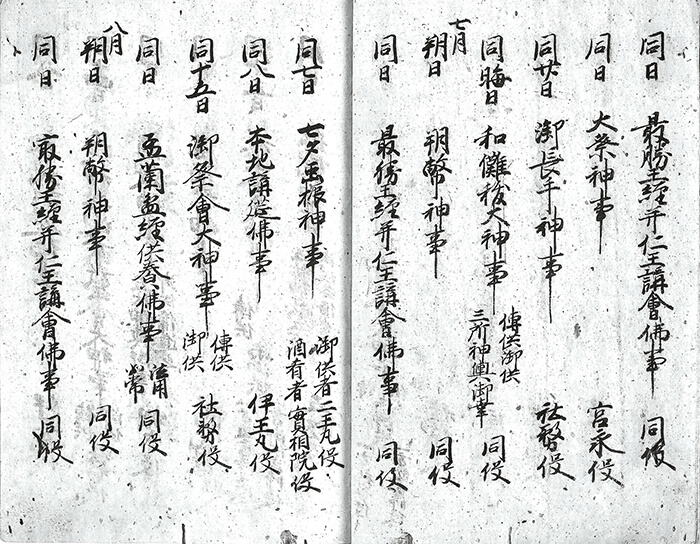 同日 最勝王經并仁王講會佛事 同役
同日 大祭神事 宮永役
同廿日 御長手神事 社務役
同晦日 和儺秡大神事 傳供御供 三所神輿御幸 同役
七月
朔日 朔幣神事 同役
同日 最勝王經并仁王講會佛事 同役
同七日 七夕 神事 御供者二王丸役 酒肴者實相院役
同八日 本地講 佛事 伊王丸役
同十五日 御祭會大神事 傳供 御供 社務役
同日 盂蘭盆經供養佛事 同役
八月
朔日 朔幣神事 同役
同日 最勝王經并仁王講會佛事 同役